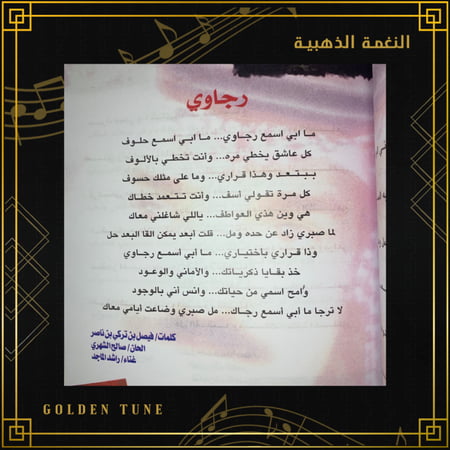 النغمة الذهبية
رجاوي
ما ابي اسمع رجاوي... ما ابي أسمع حلوف
كل عاشق يخطي مره... وانت تخطي بالالوف
ببتعد وهذا قراري... وما على مثلك حسوف
كل مرة تقولي آسف... وأنت تتعمد خطاك
هي وين هذي العواطف... ياللي شاغلني معاك
لما صبري زاد عن حده ومل... قلت أبعد يمكن القا البعد حل
وذا قراري بأختياري... ما ابي أسمع رجاوي
خذ بقايا ذكرياتك... والأماني والوعود
وأمح اسمي من حياتك... وانس أني بالوجود
لا ترجا ما أبي أسمع رجاك... مل صبري وضاعت أيامي معاك
كلمات/ فيصل بن تركي بن ناصر
الحان/ صالح الشهري
غناء/ راشد الماجد
GOLDEN TUNE